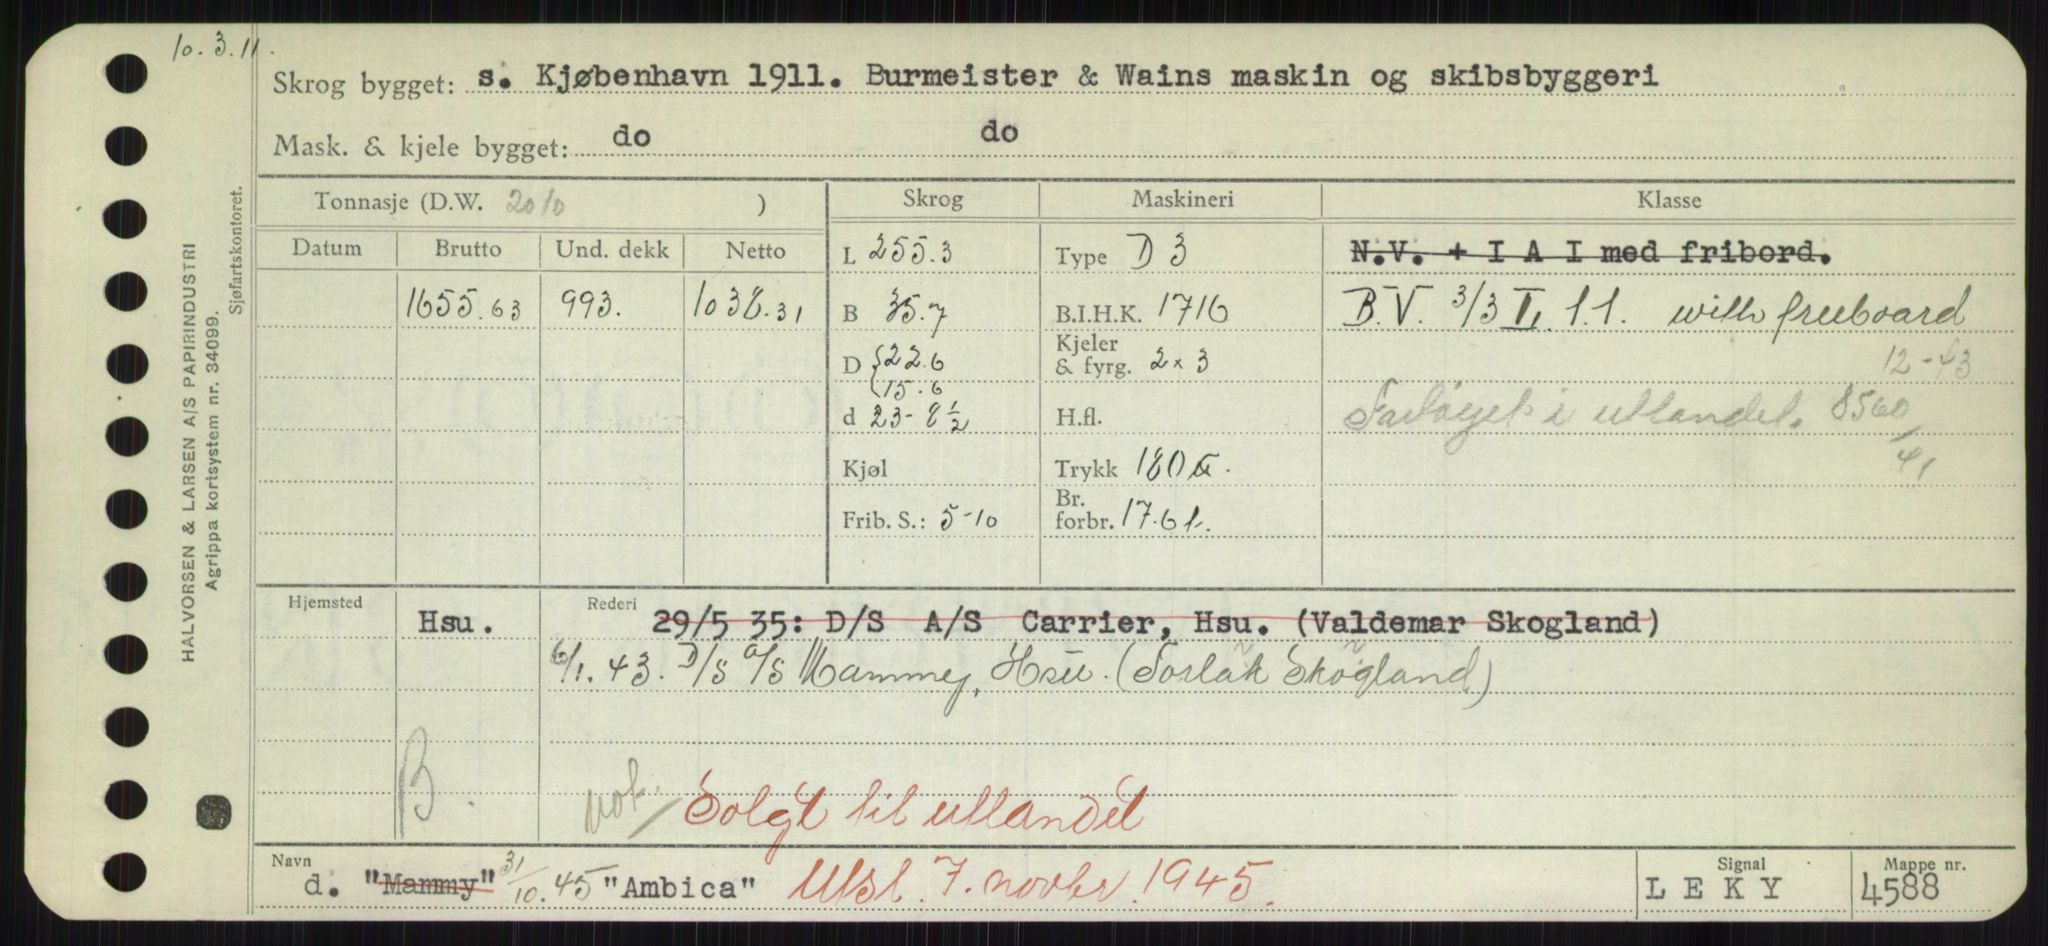 10.3.11.
Skrog bygget: s. Kjøbenhavn 1911. Burmeister & Wains maskin og skibsbyggeri
Mask. & kjele bygget: do do
Tonnasje (D.W. 2010 )
Skrog
Maskineri
Klasse
Datum Brutto Und. dekk Netto
1655.63 993. 1038.31
L 255.3
B 35.7
D 22.6
15.6
d 23-8½
Kjøl
Frib. S.: 5-10
Type D 3
B.I.H.K. 1716
Kjeler
& fyrg. 2 x 3
H.fl.
Trykk 180
Br.
forbr. 17.6 t.
N.V. + I A I med fribord.
B.V. 3/3 I, 1.1. with freeboard
12-43
i utlandet. 8560/41
HALVORSEN & LARSEN A/S PAPIRINDUSTRI
Agrippa kortsystem nr. 34099.
Sjøfartskontoret.
Hjemsted
Hsu.
Rederi
29/5 35: D/S A/S Carrier, Hsu. (Valdemar Skogland)
6/1.43. D/S A/S Mammy, Hsu. (Torlak Skogland)
B.
not. Solgt til utlandet
Navn
d. "Mammy" 31/10.45 "Ambica" Utsl. 7. novbr. 1945.
Signal
LEKY
Mappe nr.
4588